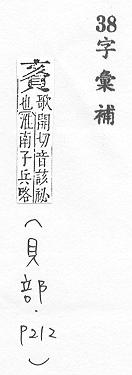 38字彙補
賌
歌開切音該祕
也淮南子兵略
(貝部.P212)